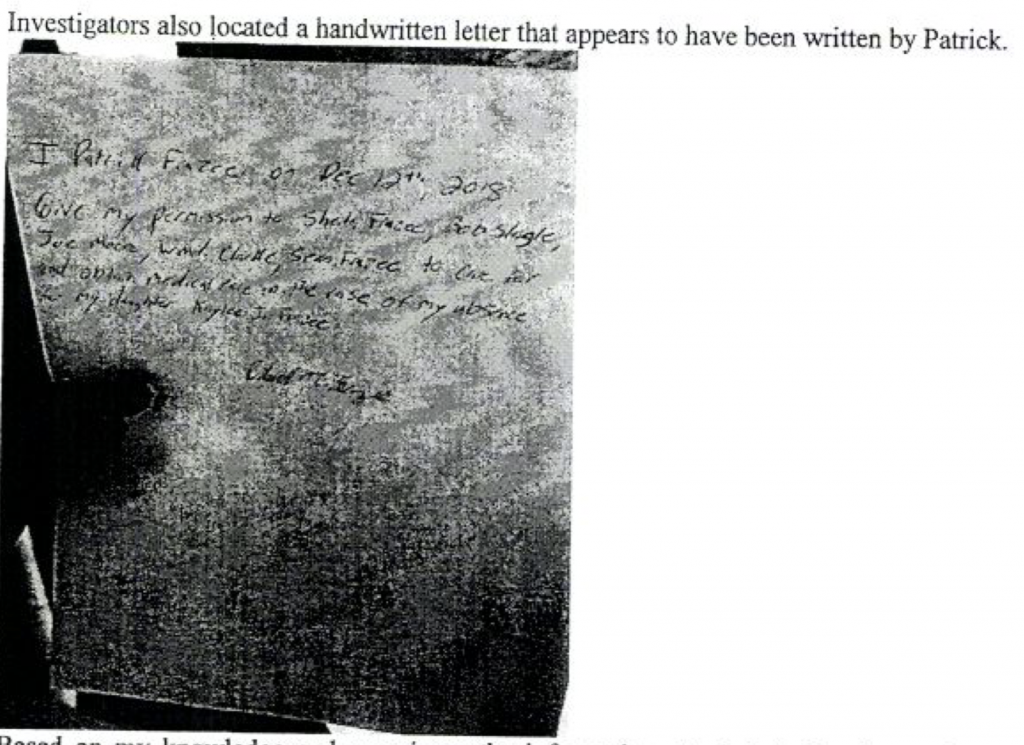 Investigators also located a handwritten letter that appears to have been written by Patrick.
I Patrick Frazee on Dec 12th, 2018
Give my permission to Sheila Frazee, Bob Slagle,
Joe Moore, Clarke, Sean Frazee to care for
and obtain medical care in the case of my absence
for my daughter Kaylee J. Frazee
Based on my knowledge